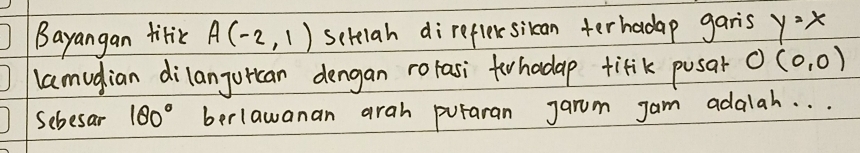 Bayangan titik A(-2, 1) setelah direfleksikan terhadap garis y=x
kemudian dilanjutkan dengan rotasi terhadap titik pusat O (0,0)
Sebesar 180° berlawanan arah putaran jarum jam adalah...